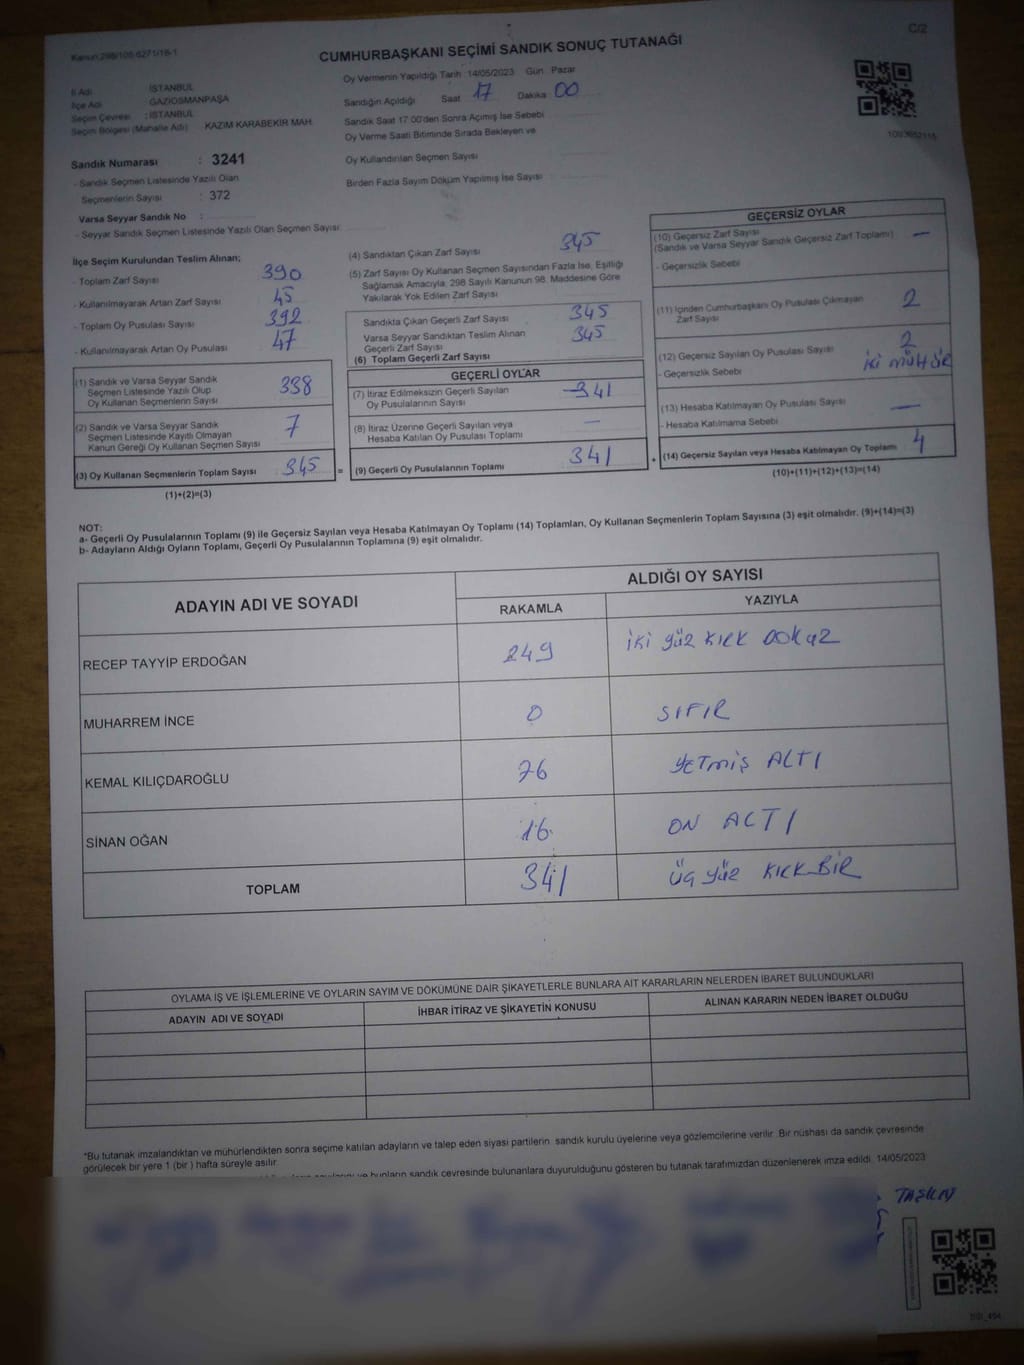 Kanun:298/105-6271/16-1
C/2
CUMHURBAŞKANI SEÇİMİ SANDIK SONUÇ TUTANAĞI
İl Adı : İSTANBUL
İlçe Adı : GAZİOSMANPAŞA
Seçim Çevresi : İSTANBUL
Seçim Bölgesi (Mahalle Adı) KAZIM KARABEKİR MAH.
Oy Vermenin Yapıldığı Tarih 14/05/2023 Gün Pazar
Sandığın Açıldığı Saat 17 Dakika 00
Sandık Saat 17:00'den Sonra Açımış İse Sebebi
Oy Verme Saati Bitiminde Sırada Bekleyen ve
Oy Kullandırılan Seçmen Sayısı
Birden Fazla Sayım Döküm Yapılmış İse Sayısı
Sandık Numarası : 3241
- Sandık Seçmen Listesinde Yazılı Olan
Seçmenlerin Sayısı : 372
Varsa Seyyar Sandık No :
- Seyyar Sandık Seçmen Listesinde Yazılı Olan Seçmen Sayısı:
İlçe Seçim Kurulundan Teslim Alınan;
- Toplam Zarf Sayısı 390
- Kullanılmayarak Artan Zarf Sayısı 45
- Toplam Oy Pusulası Sayısı 392
- Kullanılmayarak Artan Oy Pusulası 47
(1) Sandık ve Varsa Seyyar Sandık
Seçmen Listesinde Yazılı Olup
Oy Kullanan Seçmenlerin Sayısı 338
(2) Sandık ve Varsa Seyyar Sandık
Seçmen Listesinde Kayıtlı Olmayan
Kanun Gereği Oy Kullanan Seçmen Sayısı 7
(3) Oy Kullanan Seçmenlerin Toplam Sayısı 345
(1)+(2)=(3)
=
(4) Sandıktan Çıkan Zarf Sayısı 345
(5) Zarf Sayısı Oy Kullanan Seçmen Sayısından Fazla İse, Eşitliği
Sağlamak Amacıyla, 298 Sayılı Kanunun 98. Maddesine Göre
Yakılarak Yok Edilen Zarf Sayısı
Sandıkta Çıkan Geçerli Zarf Sayısı 345
Varsa Seyyar Sandıktan Teslim Alınan
Geçerli Zarf Sayısı
(6) Toplam Geçerli Zarf Sayısı 345
GEÇERLİ OYLAR
(7) İtiraz Edilmeksizin Geçerli Sayılan
Oy Pusulalarının Sayısı 341
(8) İtiraz Üzerine Geçerli Sayılan veya
Hesaba Katılan Oy Pusulası Toplamı —
(9) Geçerli Oy Pusulalarının Toplamı 341
+
GEÇERSİZ OYLAR
(10) Geçersiz Zarf Sayısı
(Sandık ve Varsa Seyyar Sandık Geçersiz Zarf Toplamı) —
- Geçersizlik Sebebi
(11) İçinden Cumhurbaşkanı Oy Pusulası Çıkmayan
Zarf Sayısı 2
(12) Geçersiz Sayılan Oy Pusulası Sayısı 2
- Geçersizlik Sebebi iki MÜHÜR
(13) Hesaba Katılmayan Oy Pusulası Sayısı —
- Hesaba Katılmama Sebebi
(14) Geçersiz Sayılan veya Hesaba Katılmayan Oy Toplamı 4
(10)+(11)+(12)+(13)=(14)
NOT:
a- Geçerli Oy Pusulalarının Toplamı (9) ile Geçersiz Sayılan veya Hesaba Katılmayan Oy Toplamı (14) Toplamları, Oy Kullanan Seçmenlerin Toplam Sayısına (3) eşit olmalıdır. (9)+(14)=(3)
b- Adayların Aldığı Oyların Toplamı, Geçerli Oy Pusulalarının Toplamına (9) eşit olmalıdır.
ADAYIN ADI VE SOYADI
ALDIĞI OY SAYISI
RAKAMLA YAZIYLA
RECEP TAYYİP ERDOĞAN 249 iki yüz KIRK DOKUZ
MUHARREM İNCE 0 SIFIR
KEMAL KILIÇDAROĞLU 76 YETMİŞ ALTI
SİNAN OĞAN 16 ON ALTI
TOPLAM 341 ÜÇ YÜZ KIRK BİR
OYLAMA İŞ VE İŞLEMLERİNE VE OYLARIN SAYIM VE DÖKÜMÜNE DAİR ŞİKAYETLERLE BUNLARA AİT KARARLARIN NELERDEN İBARET BULUNDUKLARI
ADAYIN ADI VE SOYADI İHBAR İTİRAZ VE ŞİKAYETİN KONUSU ALINAN KARARIN NEDEN İBARET OLDUĞU
*Bu tutanak imzalandıktan ve mühürlendikten sonra seçime katılan adayların ve talep eden siyasi partilerin sandık kurulu üyelerine veya gözlemcilerine verilir. Bir nüshası da sandık çevresinde
görülecek bir yere 1 (bir) hafta süreyle asılır.
bunların sandık çevresinde bulunanlara duyurulduğunu gösteren bu tutanak tarafımızdan düzenlenerek imza edildi. 14/05/2023
TAŞKIN